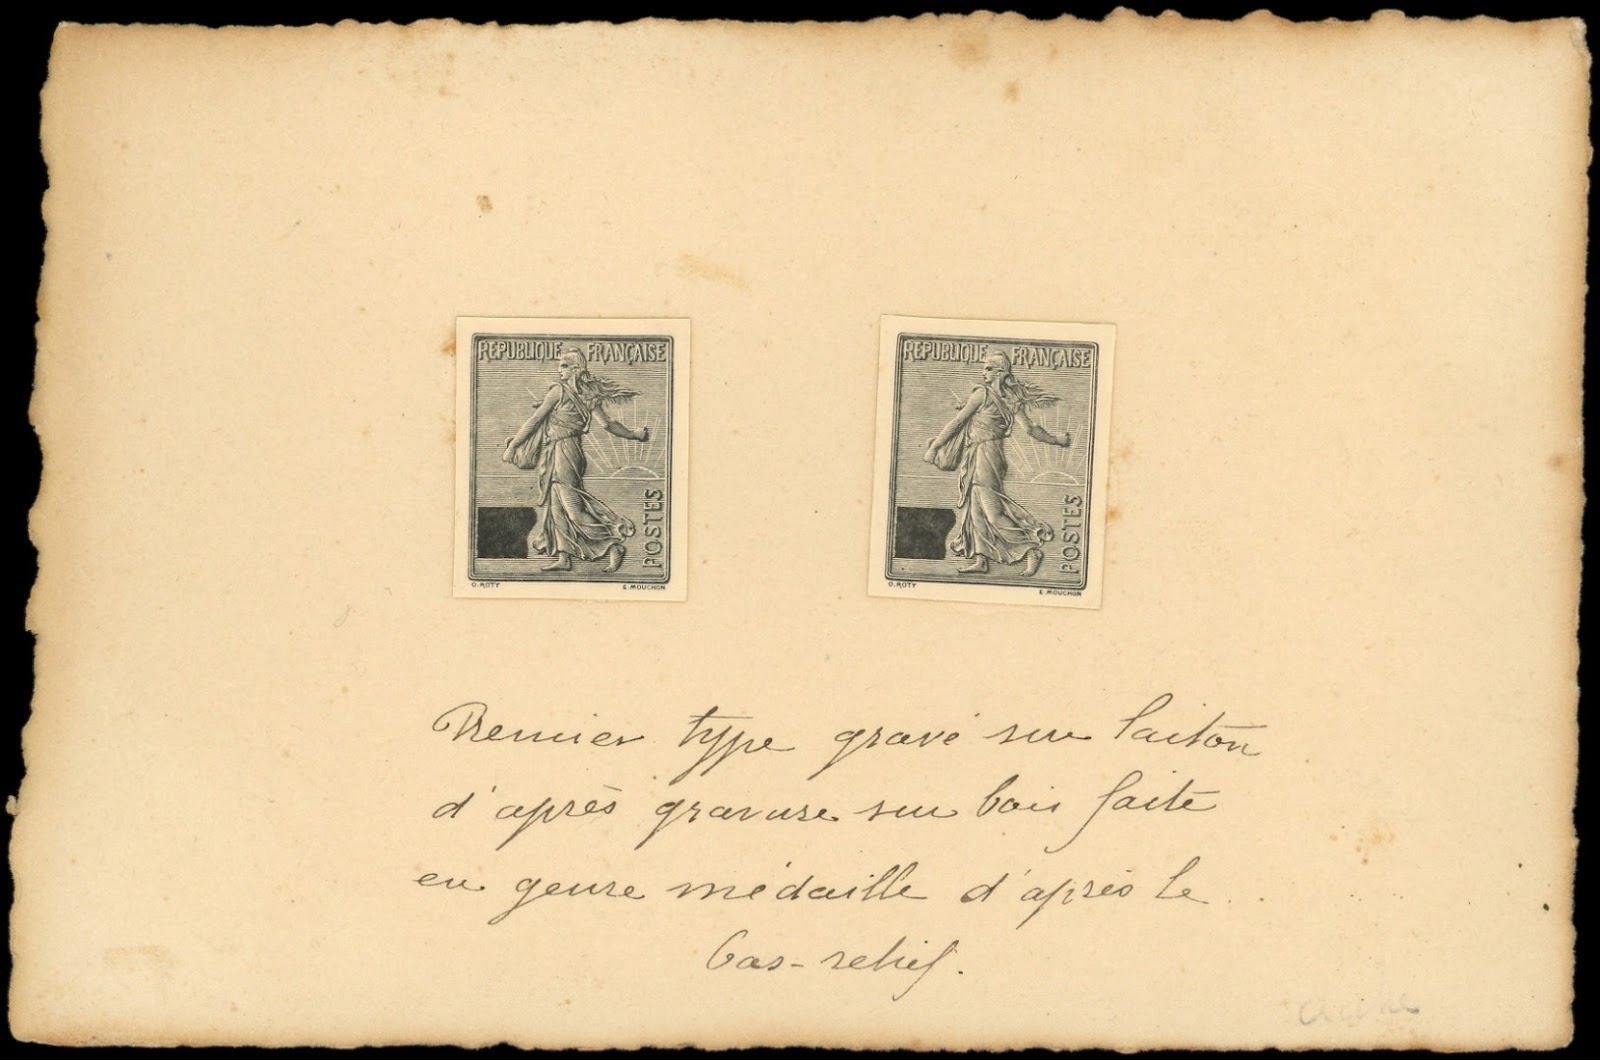 REPUBLIQUE FRANÇAISE
POSTES
O. ROTY E. MOUCHON
REPUBLIQUE FRANÇAISE
POSTES
O. ROTY E. MOUCHON
Premier type gravé sur laiton
d'après gravure sur bois faite
en genre médaille d'après le
bas-relief.